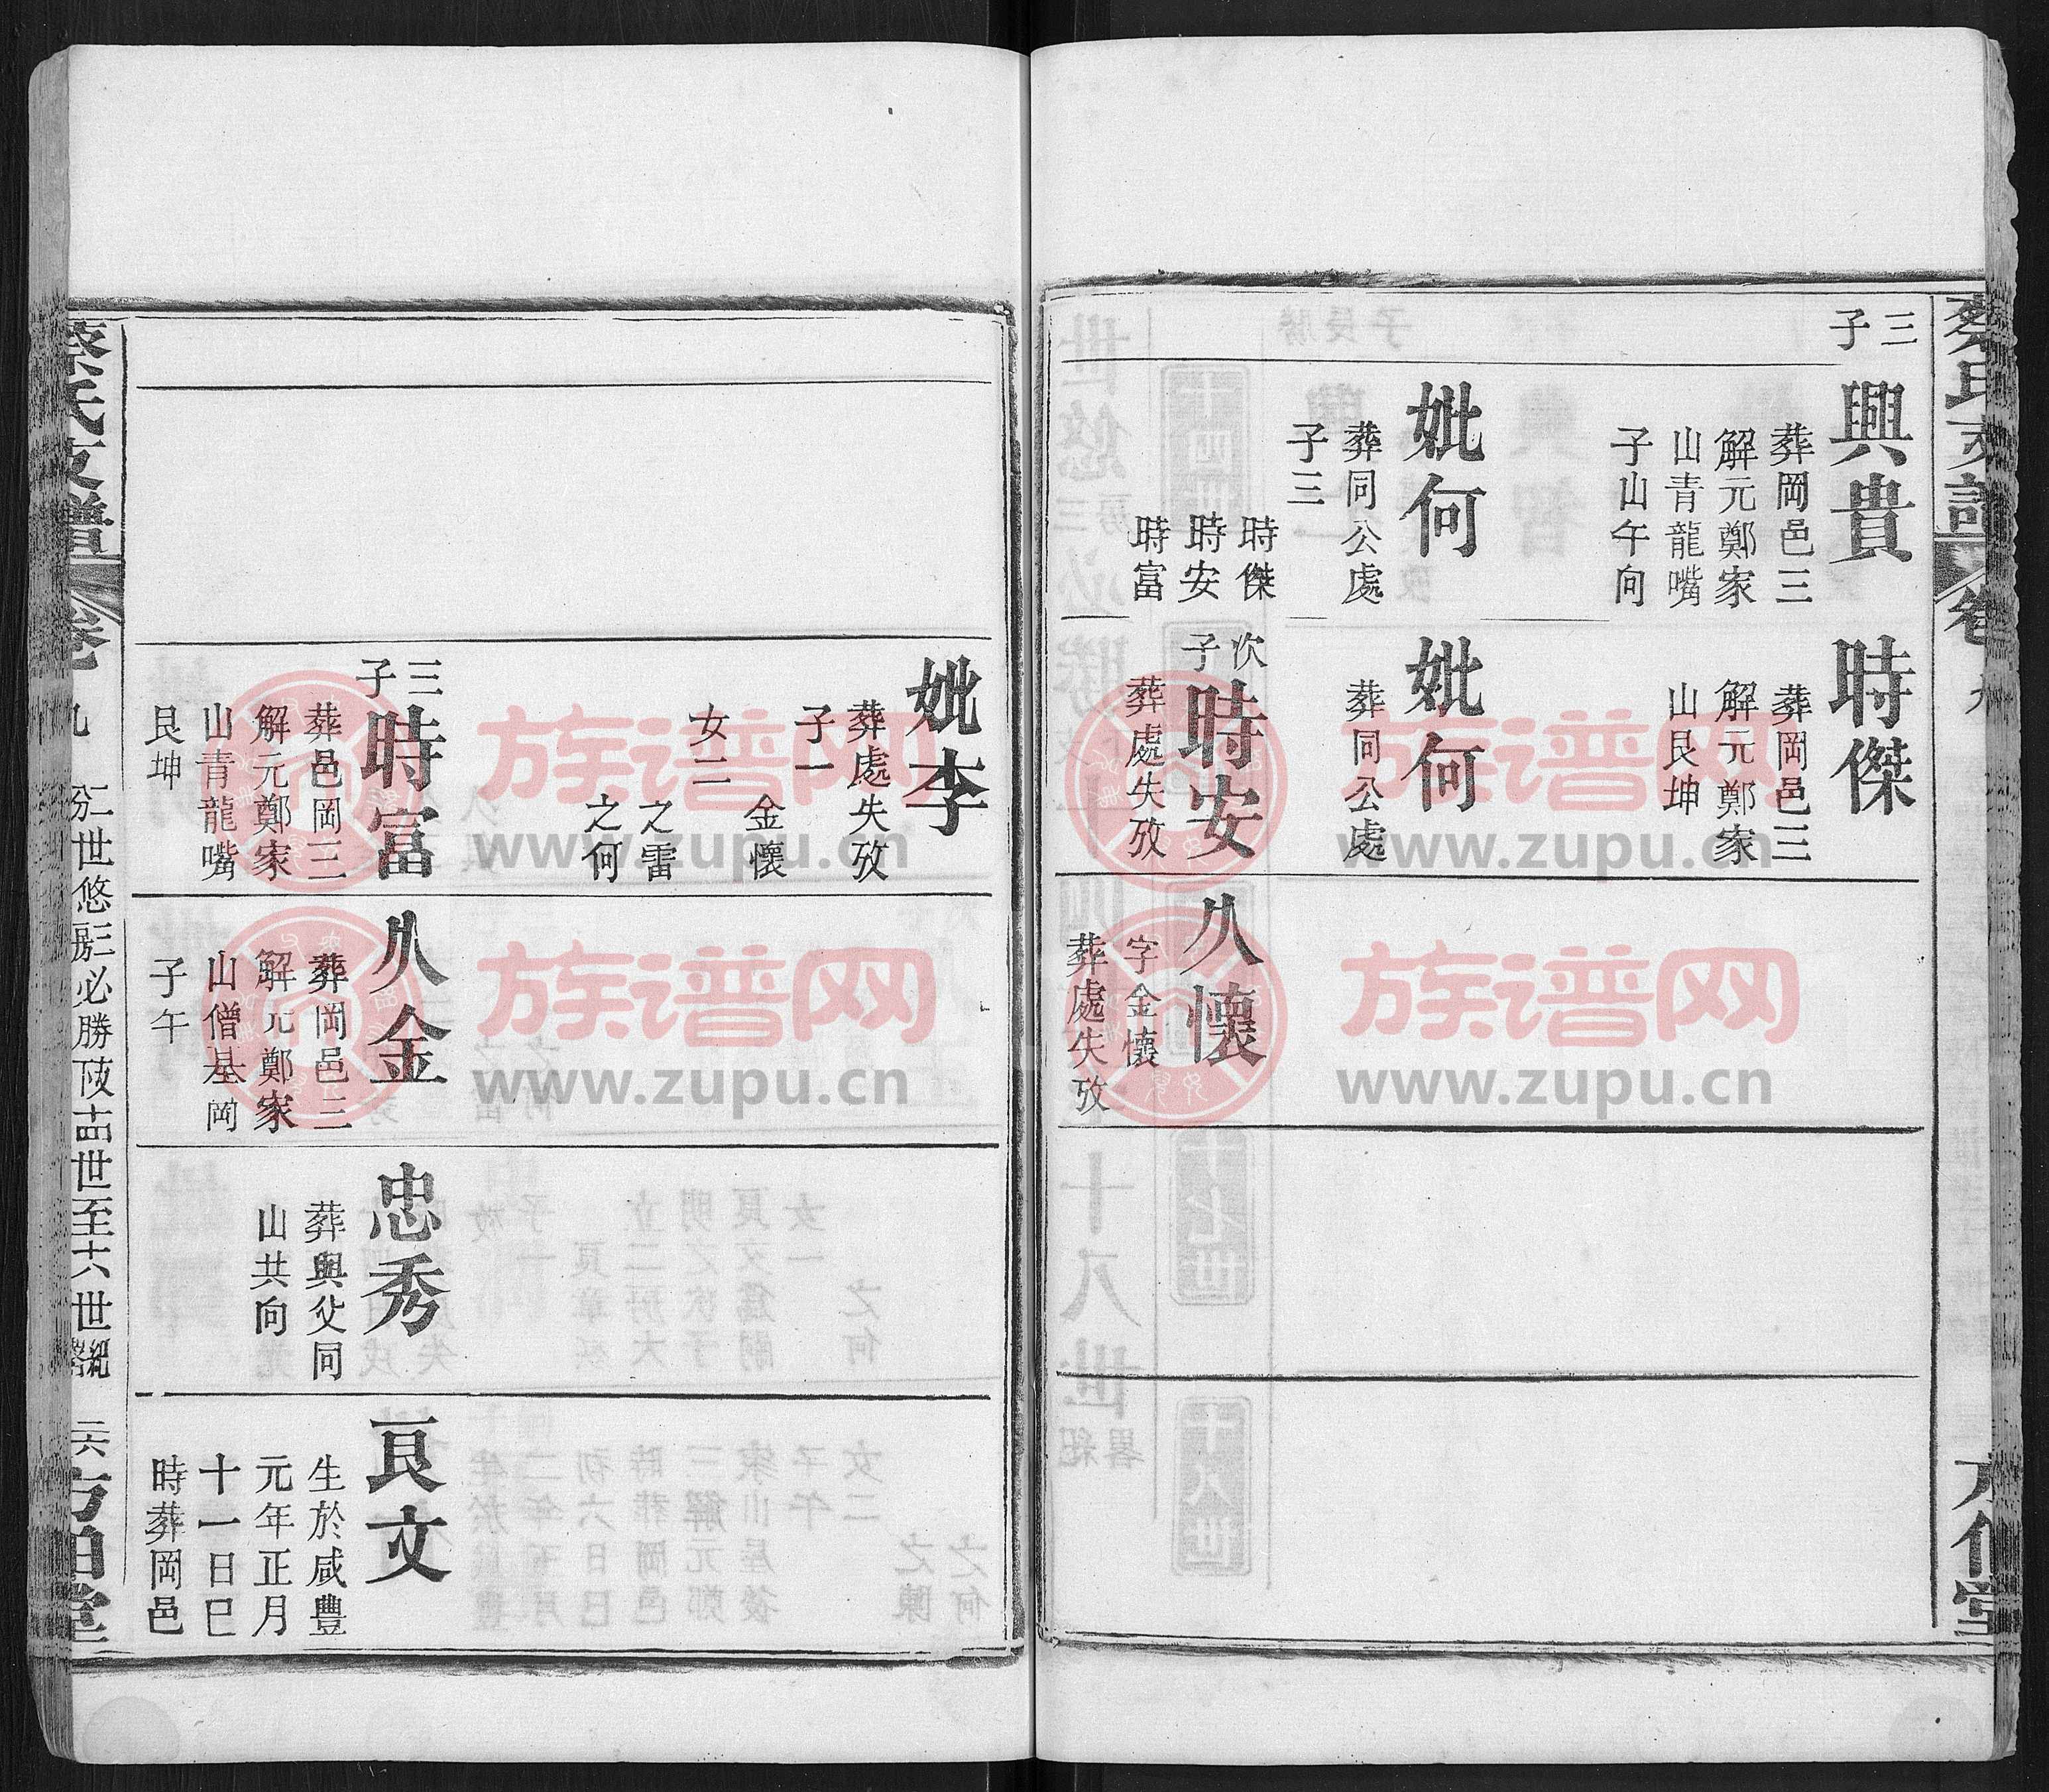 三子
興貴
葬岡邑三
解元鄭家
山青龍嘴
子山午向
妣何
葬同公處
子三
時傑
時安
時富
時傑
葬岡邑三
解元鄭家
山艮坤
妣何
葬同公處
次子
時安
葬處失攷
久懷
字金懷
葬處失攷
妣李
葬處失攷
子一
金懷
女二
之雷
之何
三子
時富
葬邑岡三
解元鄭家
山青龍嘴
艮坤
久金
葬岡邑三
解元鄭家
山僧基岡
子午
忠秀
葬與父同
山共向
良文
生於咸豐
元年正月
十一日巳
時葬岡邑
蔡氏支譜
卷九
世悠三房必勝
世至六世紀
族谱网
www.zupu.cn
族谱网
www.zupu.cn
族谱网
www.zupu.cn
族谱网
www.zupu.cn